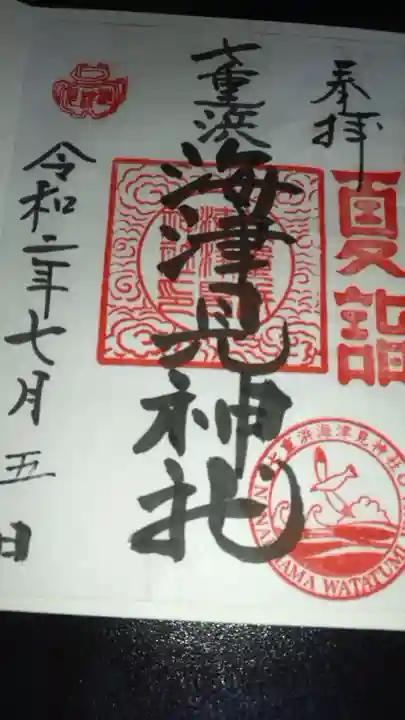 奉拝
夏詣
七重浜
海津見神社
令和二年七月五日
七重浜海津見神社
NANAEHAMA WATATUMI